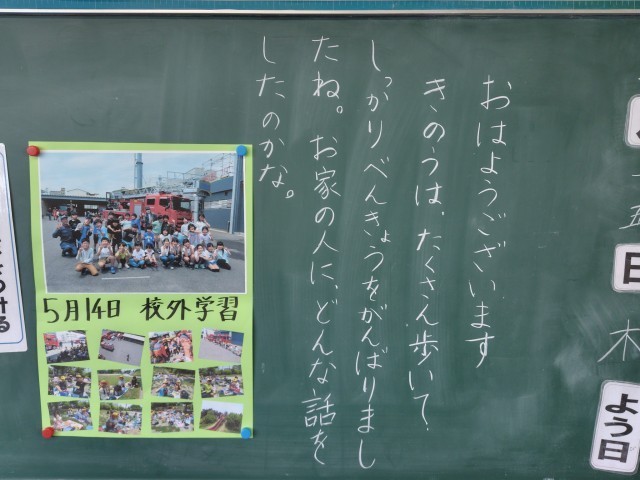 十五
日
木
よう日
おはようございます
きのうは、たくさん歩いて、
しっかりべんきょうをがんばりまし
たね。お家の人に、どんな話を
したのかな。
5月14日 校外学習